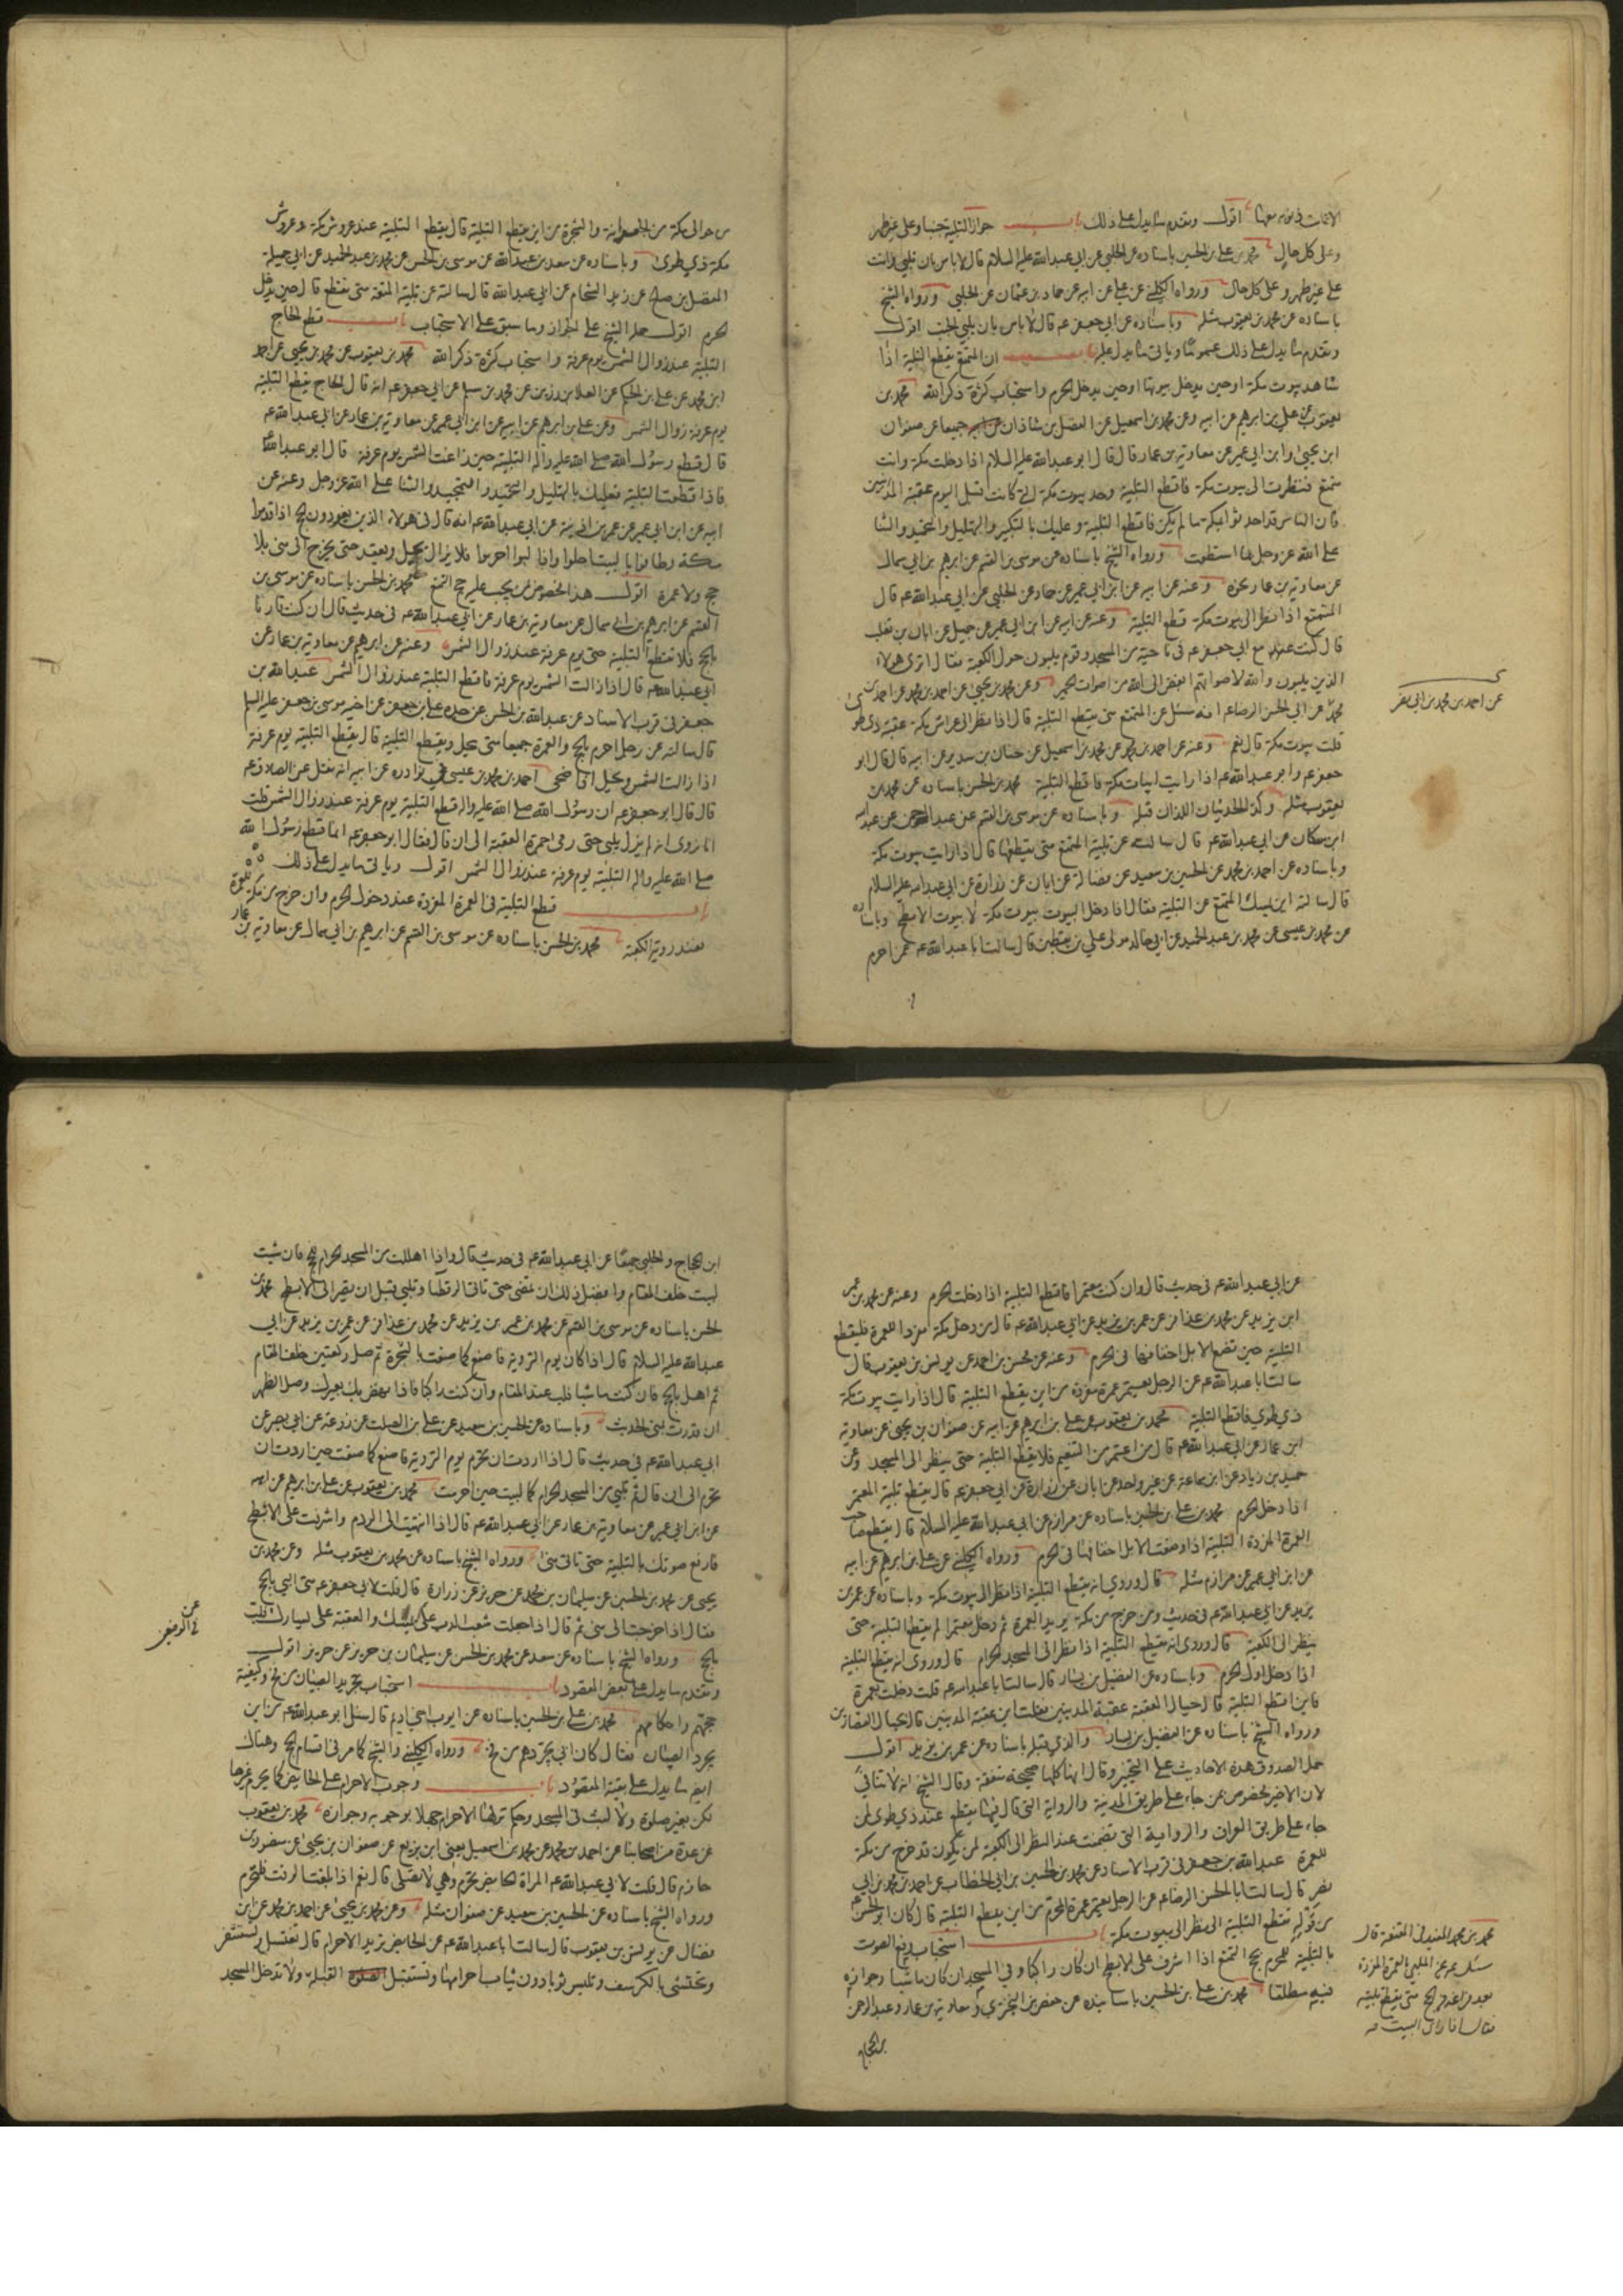 الاثبات في مونه معونها اقول وتقدم ما يدل على ذلك باب جواز التلبية جنبا وعلى غير طهر
وعلى كل حال محمد بن علي بن الحسين باسناده عن الحلبي عن ابي عبد الله عليه السلام قال لا باس بان تلبي وانت
على غير طهر وعلى كل حال ورواه الكليني عن علي عن ابيه عن حماد بن عثمان عن الحلبي ورواه الشيخ
باسناده عن محمد بن يعقوب مثله وباسناده عن ابي جعفر ع قال لا باس بان يلبي الجنب اقول
وتقدم ما يدل على ذلك عموما وياتي ما يدل عليه باب ان المتمتع يقطع التلبية اذا
شاهد بيوت مكة او حين يدخل بيوتها او حين يدخل الحرم واستحباب كثرة ذكر الله محمد بن
يعقوب عن علي بن ابرهيم عن ابيه وعن محمد بن اسمعيل عن الفضل بن شاذان جميعا عن صفوان
ابن يحيى وابن ابي عمير عن معاوية بن عمار قال قال ابو عبد الله عليه السلام اذا دخلت مكة وانت
متمتع فنظرت الى بيوت مكة فاقطع التلبية وحد بيوت مكة التي كانت قبل اليوم عقبة المدنيين
فان الناس قد احدثوا بمكة ما لم يكن فاقطع التلبية وعليك بالتكبير والتهليل والتحميد والثنا
على الله عز وجل بما استطعت ورواه الشيخ باسناده عن موسى بن القسم عن ابرهيم بن ابي سمال
عن معاوية بن عمار نحوه وعنه عن ابيه عن ابن ابي عمير عن حماد عن الحلبي عن ابي عبد الله ع قال
المتمتع اذا نظر الى بيوت مكة قطع التلبية وعنه عن ابيه عن ابن ابي عمير عن جميل عن ابان بن تغلب
قال كنت مع ابي جعفر ع في ناحية من المسجد وقوم يلبون حول الكعبة فقال اترى هولاء
الذين يلبون والله لاصواتهم ابغض الى الله من اصوات الحمير وعن محمد بن يحيى عن احمد بن محمد
عن احمد بن محمد بن ابي نصر
عن ابي الحسن الرضا ع انه سئل عن المتمتع متى يقطع التلبية قال اذا نظر الى عراش مكة عقبة ذي طوى
قلت بيوت مكة قال نعم وعنه عن احمد بن محمد عن محمد بن اسمعيل عن حنان بن سدير عن ابيه قال قال ابو
جعفر ع وابو عبد الله ع اذا رايت ابيات مكة فاقطع التلبية محمد بن الحسن باسناده عن محمد بن
يعقوب مثله وكذا الحديثان اللذان قبله وباسناده عن موسى بن القسم عن عبد الرحمن عن عبد الله
ابن مسكان عن ابي عبد الله ع قال سالته عن تلبية المتمتع متى يقطعها قال اذا رايت بيوت مكة
وباسناده عن احمد بن محمد عن الحسين بن سعيد عن فضالة عن ابان عن زرارة عن ابي عبد الله عليه السلام
قال سالته اين يمسك المتمتع عن التلبية فقال اذا دخل البيوت بيوت مكة لا بيوت الابطح وباسناده
عن محمد بن عيسى عن محمد بن عبد الحميد عن ابي خالد مولى علي بن يقطين قال سالت ابا عبد الله ع عمن احرم
من حوالى مكة من الجعرانة والشجرة من اين يقطع التلبية قال يقطع التلبية عند عروش مكة وعروش
مكة ذي طوى وباسناده عن سعد بن عبد الله عن موسى بن الحسن عن محمد بن عبد الحميد عن ابي جميلة
المفضل بن صالح عن زيد الشحام عن ابي عبد الله قال سالته عن تلبية المتعة متى تقطع قال حين يدخل
الحرم اقول حمله الشيخ على الجواز وما سبق على الاستحباب باب قطع الحاج
التلبية عند زوال الشمس يوم عرفة واستحباب كثرة ذكر الله محمد بن يعقوب عن محمد بن يحيى عن احمد
ابن محمد عن علي بن الحكم عن العلا بن رزين عن محمد بن مسلم عن ابي جعفر ع انه قال الحاج يقطع التلبية
يوم عرفة زوال الشمس وعن علي بن ابرهيم عن ابيه عن ابن ابي عمير عن معاوية بن عمار عن ابي عبد الله ع
قال قطع رسول الله صلى الله عليه واله التلبية حين زاغت الشمس يوم عرفة قال ابو عبد الله ع
فاذا قطعت التلبية فعليك بالتهليل والتحميد والتمجيد والثنا على الله عز وجل وعنه عن
ابيه عن ابن ابي عمير عن عمر بن اذينة عن ابي عبد الله ع انه قال في هولاء الذين يفردون الحج اذا قدموا
مكة وطافوا بالبيت احلوا واذا لبوا احرموا فلا يزال يحل ويعقد حتى يخرج الى منى بلا
حج ولا عمرة اقول هذا مخصوص بمن يجب عليه حج التمتع محمد بن الحسن باسناده عن موسى بن
القسم عن ابرهيم بن ابي سمال عن معاوية بن عمار عن ابي عبد الله ع في حديث قال ان كنت قارنا
بالحج فلا تقطع التلبية حتى يوم عرفة عند زوال الشمس وعنه عن ابرهيم عن معاوية بن عمار عن
ابي عبد الله ع قال اذا زالت الشمس يوم عرفة فاقطع التلبية عند زوال الشمس عبد الله بن
جعفر في قرب الاسناد عن عبد الله بن الحسن عن جده علي بن جعفر عن اخيه موسى بن جعفر عليه السلم
قال سالته عن رجل احرم بالحج والعمرة جميعا متى يحل ويقطع التلبية قال يقطع التلبية يوم عرفة
اذا زالت الشمس ويحل اذا ضحى احمد بن محمد بن عيسى في نوادره عن ابيه انه نقل عن الصادق ع
قال قال ابو جعفر ع ان رسول الله صلى الله عليه واله قطع التلبية يوم عرفة عند زوال الشمس قلت
انا نروى انه لم يزل يلبى حتى رمى جمرة العقبة الى ان قال فقال ابو جعفر ع انما قطع رسول الله
صلى الله عليه واله التلبية يوم عرفة عند زوال الشمس اقول وياتي ما يدل على ذلك
باب قطع التلبية في العمرة المفردة عند دخول الحرم وان خرج من مكة للعمرة
فعند روية الكعبة محمد بن الحسن باسناده عن موسى بن القسم عن ابرهيم بن ابي سمال عن معاوية بن عمار
عن ابي عبد الله ع في حديث قال وان كنت معتمرا فاقطع التلبية اذا دخلت الحرم وعنه عن محمد بن عمر
ابن يزيد عن محمد بن عذافر عن عمر بن يزيد عن ابي عبد الله ع قال من دخل مكة مفردا للعمرة فليقطع
التلبية حين تضع الابل اخفافها في الحرم وعنه عن محسن بن احمد عن يونس بن يعقوب قال
سالت ابا عبد الله ع عن الرجل يعتمر عمرة مفردة من اين يقطع التلبية قال اذا رايت بيوت مكة
ذي طوى فاقطع التلبية محمد بن يعقوب عن علي بن ابرهيم عن ابيه عن صفوان بن يحيى عن معاوية
ابن عمار عن ابي عبد الله ع قال من اعتمر من التنعيم فلا يقطع التلبية حتى ينظر الى المسجد وعن
حميد بن زياد عن ابن سماعة عن غير واحد عن ابان عن زرارة عن ابي جعفر ع قال يقطع تلبية المعتمر
اذا دخل الحرم محمد بن علي بن الحسين باسناده عن مرازم عن ابي عبد الله عليه السلام قال يقطع صاحب
العمرة المفردة التلبية اذا وضعت الابل اخفافها في الحرم ورواه الكليني عن علي بن ابرهيم عن ابيه
عن ابن ابي عمير عن مرازم مثله قال وروي انه يقطع التلبية اذا نظر الى بيوت مكة وباسناده عن عمر بن
يزيد عن ابي عبد الله ع في حديث ومن خرج من مكة يريد العمرة ثم دخل معتمرا لم يقطع التلبية حتى
ينظر الى الكعبة قال وروى انه يقطع التلبية اذا نظر الى المسجد الحرام قال وروى انه يقطع التلبية
اذا دخل اول الحرم وباسناده عن الفضيل بن يسار قال سالت ابا عبد الله ع قلت دخلت بعمرة
فاين اقطع التلبية قال حيال العقبة عقبة المدنيين فقلت اين عقبة المدنيين قال بحيال القصارين
ورواه الشيخ باسناده عن الفضيل بن يسار والذي قبله باسناده عن عمر بن يزيد اقول
حمل الصدوق هذه الاحاديث على التخيير وقال انها كلها صحيحة متفقة وقال الشيخ انه لا تنافي
لان الاخير مخصوص بمن جاء على طريق المدينة والرواية التي قال فيها يقطع عند ذي طوى لمن
جاء على طريق العراق والرواية التي تضمنت عند النظر الى الكعبة لمن يكون قد خرج من مكة
للعمرة عبد الله بن جعفر في قرب الاسناد عن محمد بن الحسين بن ابي الخطاب عن احمد بن محمد بن ابي
نصر قال سالت ابا الحسن الرضا ع عن الرجل يعتمر عمرة المحرم من اين يقطع التلبية قال كان ابو الحسن ع
من قوله يقطع التلبية اذا نظر الى بيوت مكة باب استحباب رفع الصوت
بالتلبية للمحرم بحج التمتع اذا اشرف على الابطح ان كان راكبا وفي المسجد ان كان ماشيا وجوازه
فيه مطلقا محمد بن علي بن الحسين باسانيده عن حفص بن البختري ومعاوية بن عمار وعبد الرحمن
بن الحجاج
محمد بن محمد المفيد في المقنعة قال
سئل ع عن الملبي بالعمرة المفردة
بعد فراغه من الحج متى يقطع تلبيته
فقال اذا راى البيت منه
ابن الحجاج والحلبي جميعا عن ابي عبد الله ع في حديث قال واذا اهللت من المسجد الحرام للحج فان شئت
لبيت خلف المقام وافضل ذلك ان تمضى حتى تاتى الرقطا وتلبي قبل ان تصير الى الابطح محمد بن
الحسن باسناده عن موسى بن القسم عن محمد بن عمر بن يزيد عن محمد بن عذافر عن عمر بن يزيد عن ابي
عبد الله عليه السلام قال اذا كان يوم التروية فاصنع كما صنعت بالشجرة ثم صل ركعتين خلف المقام
ثم اهل بالحج فان كنت ماشيا فلب عند المقام وان كنت راكبا فاذا نهض بك بعيرك وصل الظهر
ان قدرت بمنى الحديث وباسناده عن الحسين بن سعيد عن علي بن الصلت عن زرعة عن ابي بصير عن
ابي عبد الله ع في حديث قال اذا اردت ان تحرم يوم التروية فاصنع كما صنعت حين اردت ان
تحرم الى ان قال ثم تلبي من المسجد الحرام كما لبيت حين احرمت محمد بن يعقوب عن علي بن ابرهيم عن ابيه
عن ابن ابي عمير عن معاوية بن عمار عن ابي عبد الله ع قال اذا انتهيت الى الردم واشرفت على الابطح
فارفع صوتك بالتلبية حتى تاتى منى ورواه الشيخ باسناده عن محمد بن يعقوب مثله وعن محمد بن
يحيى عن محمد بن الحسين عن سليمان بن محمد عن حريز عن زرارة قال قلت لابي جعفر ع متى البي بالحج
فقال اذا خرجت الى منى ثم قال اذا جعلت شعب الدب على يمينك والعقبة على يسارك فلب
بالحج ورواه الشيخ باسناده عن سعد عن محمد بن الحسن عن سليمان بن حريز عن حريز اقول
وتقدم ما يدل على بعض المقصود باب استحباب تجريد الصبيان من فخ وكيفية
حجهم واحكامهم محمد بن علي بن الحسين باسناده عن ايوب اخي اديم قال سئل ابو عبد الله ع من اين
يجرد الصبيان فقال كان ابي يجردهم من فخ ورواه الكليني والشيخ كما مر في اقسام الحج وهناك
ايضا ما يدل على بقية المقصود باب وجوب الاحرام على الحايض كما يحرم غيرها
لكن بغير صلوة ولا لبث في المسجد وحكم تركها الاحرام جهلا بوجوبه وجوازه محمد بن يعقوب
عن عدة من اصحابنا عن احمد بن محمد عن محمد بن اسمعيل يعني ابن بزيع عن صفوان بن يحيى عن منصور بن
حازم قال قلت لابي عبد الله ع المراة الحايض تحرم وهي لا تصلى قال نعم اذا بلغت الوقت فلتحرم
ورواه الشيخ باسناده عن الحسين بن سعيد عن صفوان مثله وعن محمد بن يحيى عن احمد بن محمد عن ابن
فضال عن يونس بن يعقوب قال سالت ابا عبد الله ع عن الحايض تريد الاحرام قال تغتسل وتستثفر
وتحتشى بالكرسف وتلبس ثوبا دون ثياب احرامها وتستقبل القبلة ولا تدخل المسجد